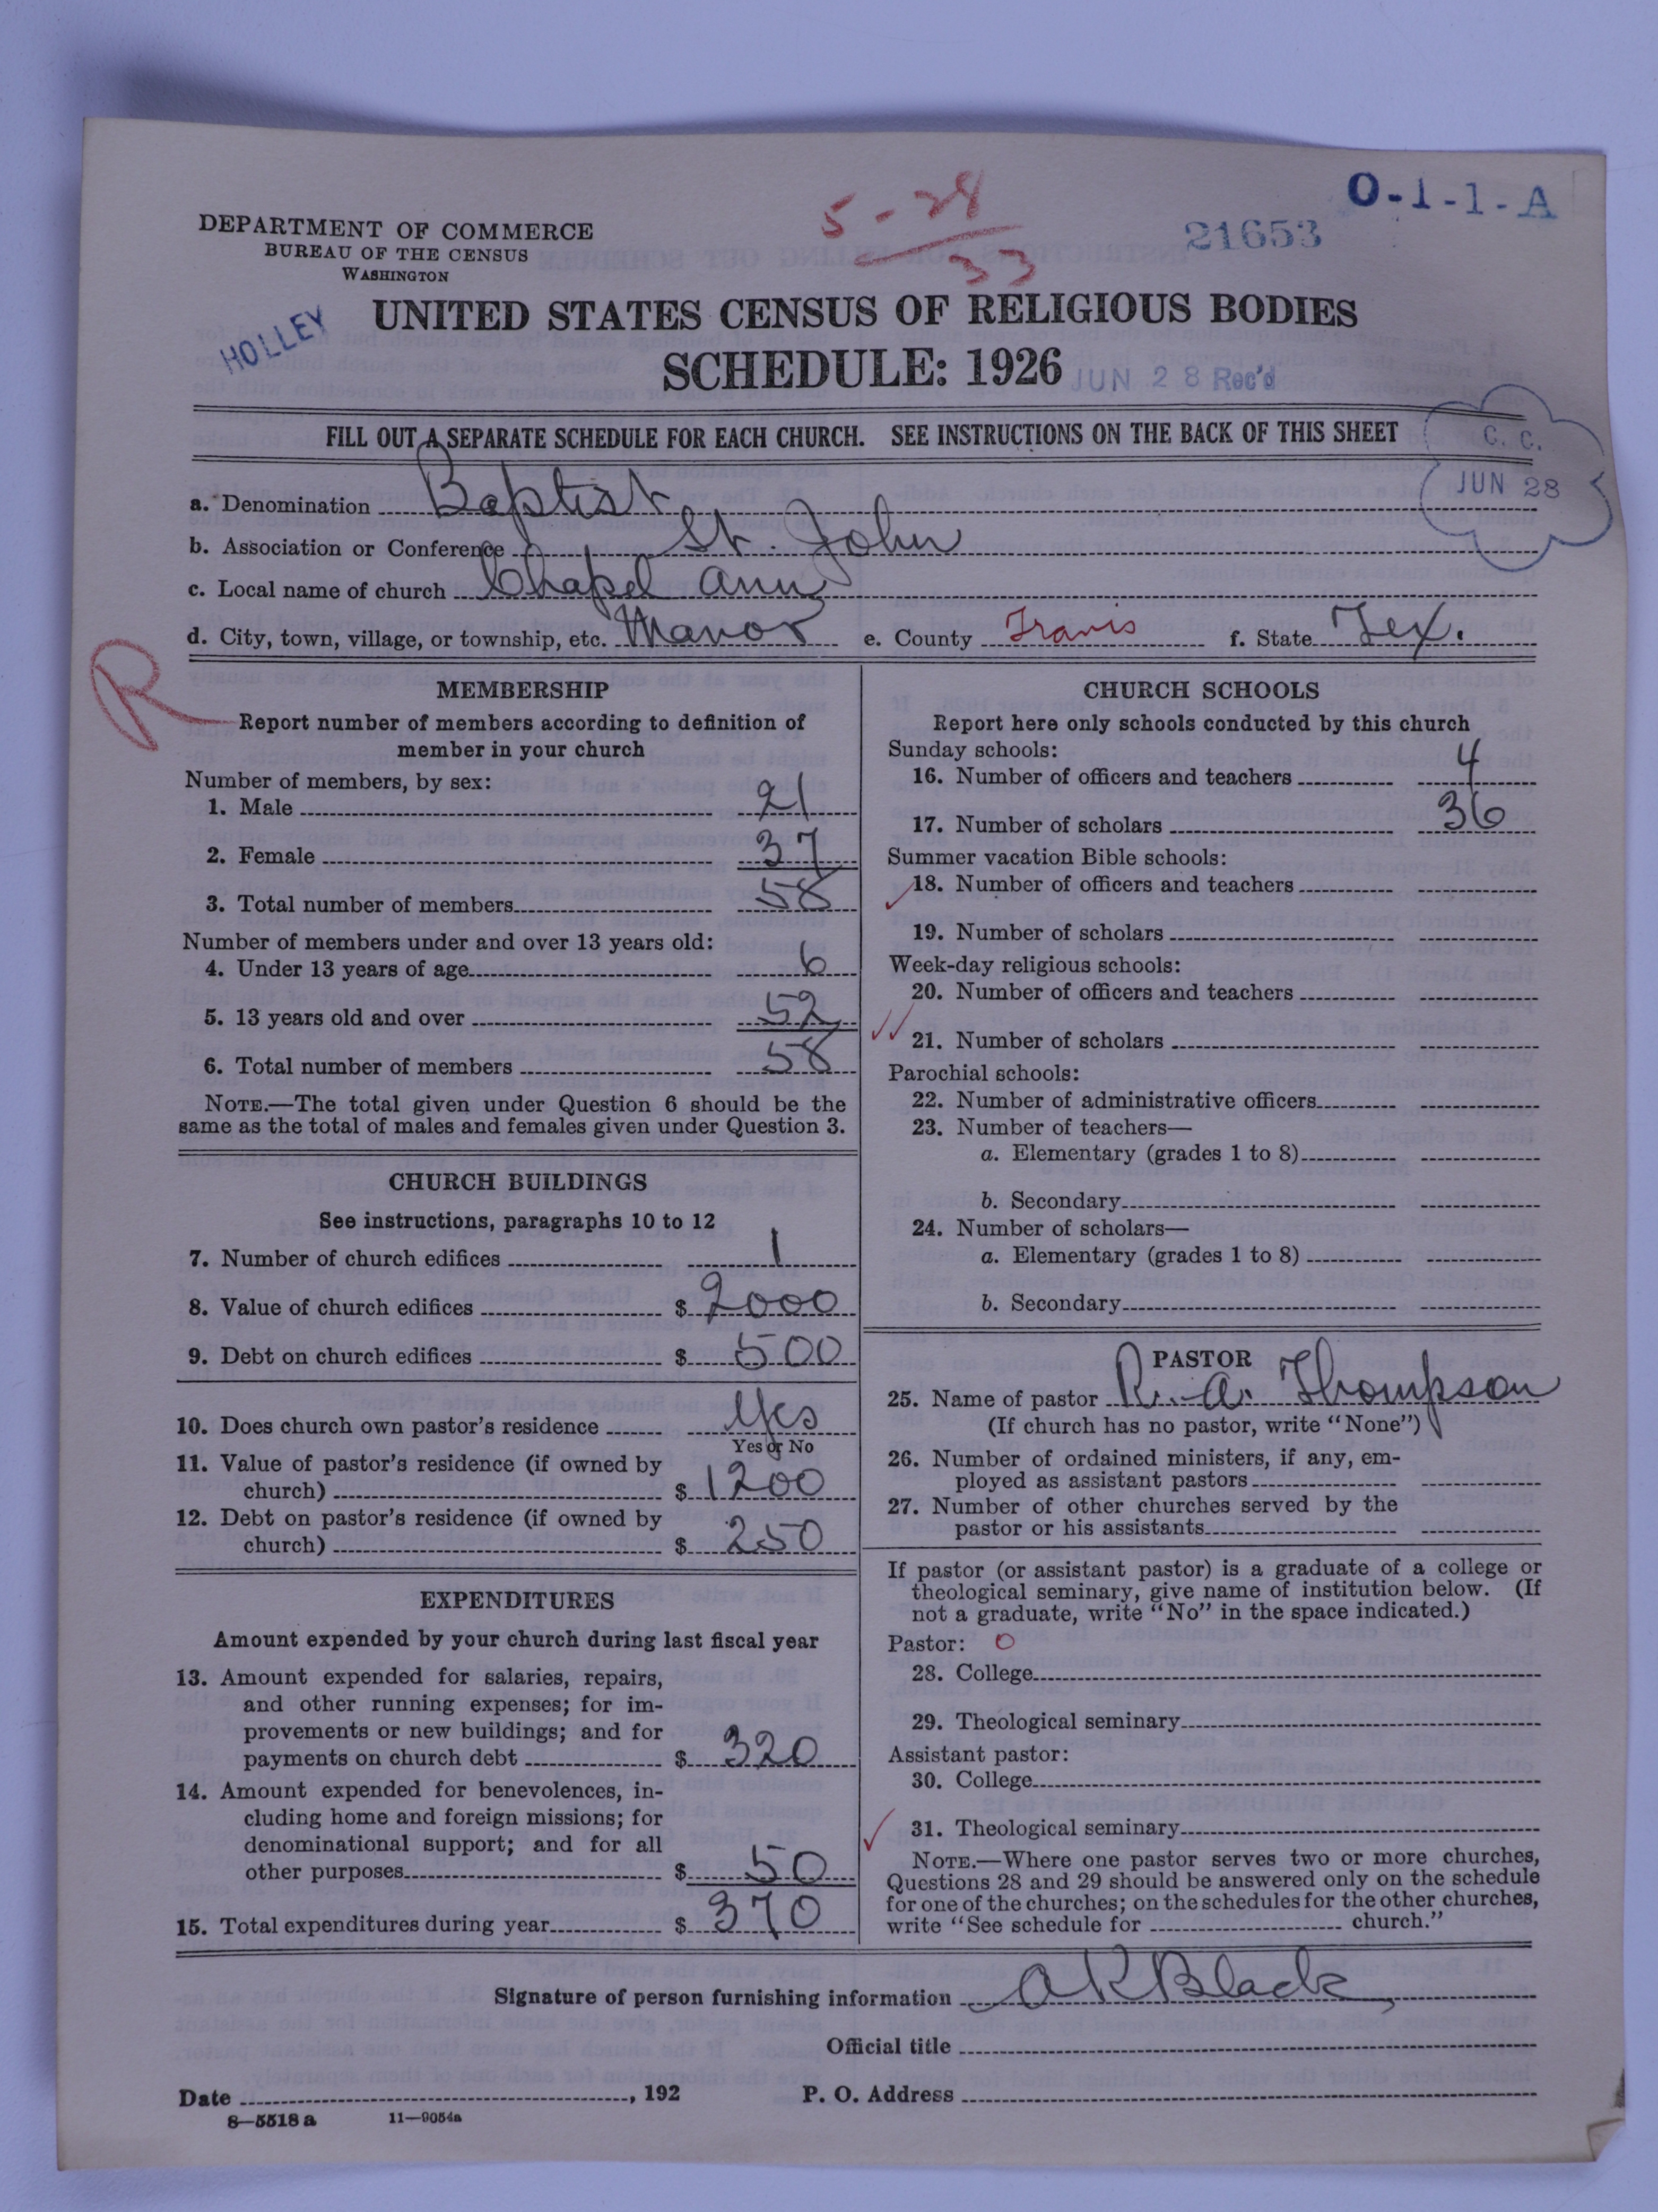 5-28
33
O-1-1-A
21653
DEPARTMENT OF COMMERCE
BUREAU OF THE CENSUS
WASHINGTON
HOLLEY
UNITED STATES CENSUS OF RELIGIOUS BODIES
SCHEDULE: 1926
JUN 28 Rec'd
FILL OUT A SEPARATE SCHEDULE FOR EACH CHURCH. SEE INSTRUCTIONS ON THE BACK OF THIS SHEET
C. C.
JUN 28
a. Denomination Baptist
b. Association or Conference St. John
c. Local name of church Chapel Ann
d. City, town, village, or township, etc. Manor e. County Travis f. State Tex.
R
MEMBERSHIP
Report number of members according to definition of
member in your church
Number of members, by sex:
1. Male 21
2. Female 37
3. Total number of members 58
Number of members under and over 13 years old:
4. Under 13 years of age 6
5. 13 years old and over 52
6. Total number of members 58
NOTE.—The total given under Question 6 should be the
same as the total of males and females given under Question 3.
CHURCH BUILDINGS
See instructions, paragraphs 10 to 12
7. Number of church edifices 1
8. Value of church edifices $ 2000
9. Debt on church edifices $ 500
10. Does church own pastor's residence Yes
Yes or No
11. Value of pastor's residence (if owned by
church) $ 1200
12. Debt on pastor's residence (if owned by
church) $ 250
EXPENDITURES
Amount expended by your church during last fiscal year
13. Amount expended for salaries, repairs,
and other running expenses; for im-
provements or new buildings; and for
payments on church debt $ 320
14. Amount expended for benevolences, in-
cluding home and foreign missions; for
denominational support; and for all
other purposes $ 50
15. Total expenditures during year $ 370
CHURCH SCHOOLS
Report here only schools conducted by this church
Sunday schools:
16. Number of officers and teachers 4
17. Number of scholars 36
Summer vacation Bible schools:
18. Number of officers and teachers
19. Number of scholars
Week-day religious schools:
20. Number of officers and teachers
21. Number of scholars
Parochial schools:
22. Number of administrative officers
23. Number of teachers—
a. Elementary (grades 1 to 8)
b. Secondary
24. Number of scholars—
a. Elementary (grades 1 to 8)
b. Secondary
PASTOR
25. Name of pastor R. A. Thompson
(If church has no pastor, write "None")
26. Number of ordained ministers, if any, em-
ployed as assistant pastors
27. Number of other churches served by the
pastor or his assistants
If pastor (or assistant pastor) is a graduate of a college or
theological seminary, give name of institution below. (If
not a graduate, write "No" in the space indicated.)
Pastor: O
28. College
29. Theological seminary
Assistant pastor:
30. College
31. Theological seminary
NOTE.—Where one pastor serves two or more churches,
Questions 28 and 29 should be answered only on the schedule
for one of the churches; on the schedules for the other churches,
write "See schedule for church."
Signature of person furnishing information A K Black
Official title
Date , 192 P. O. Address
8—5518 a 11—9054a